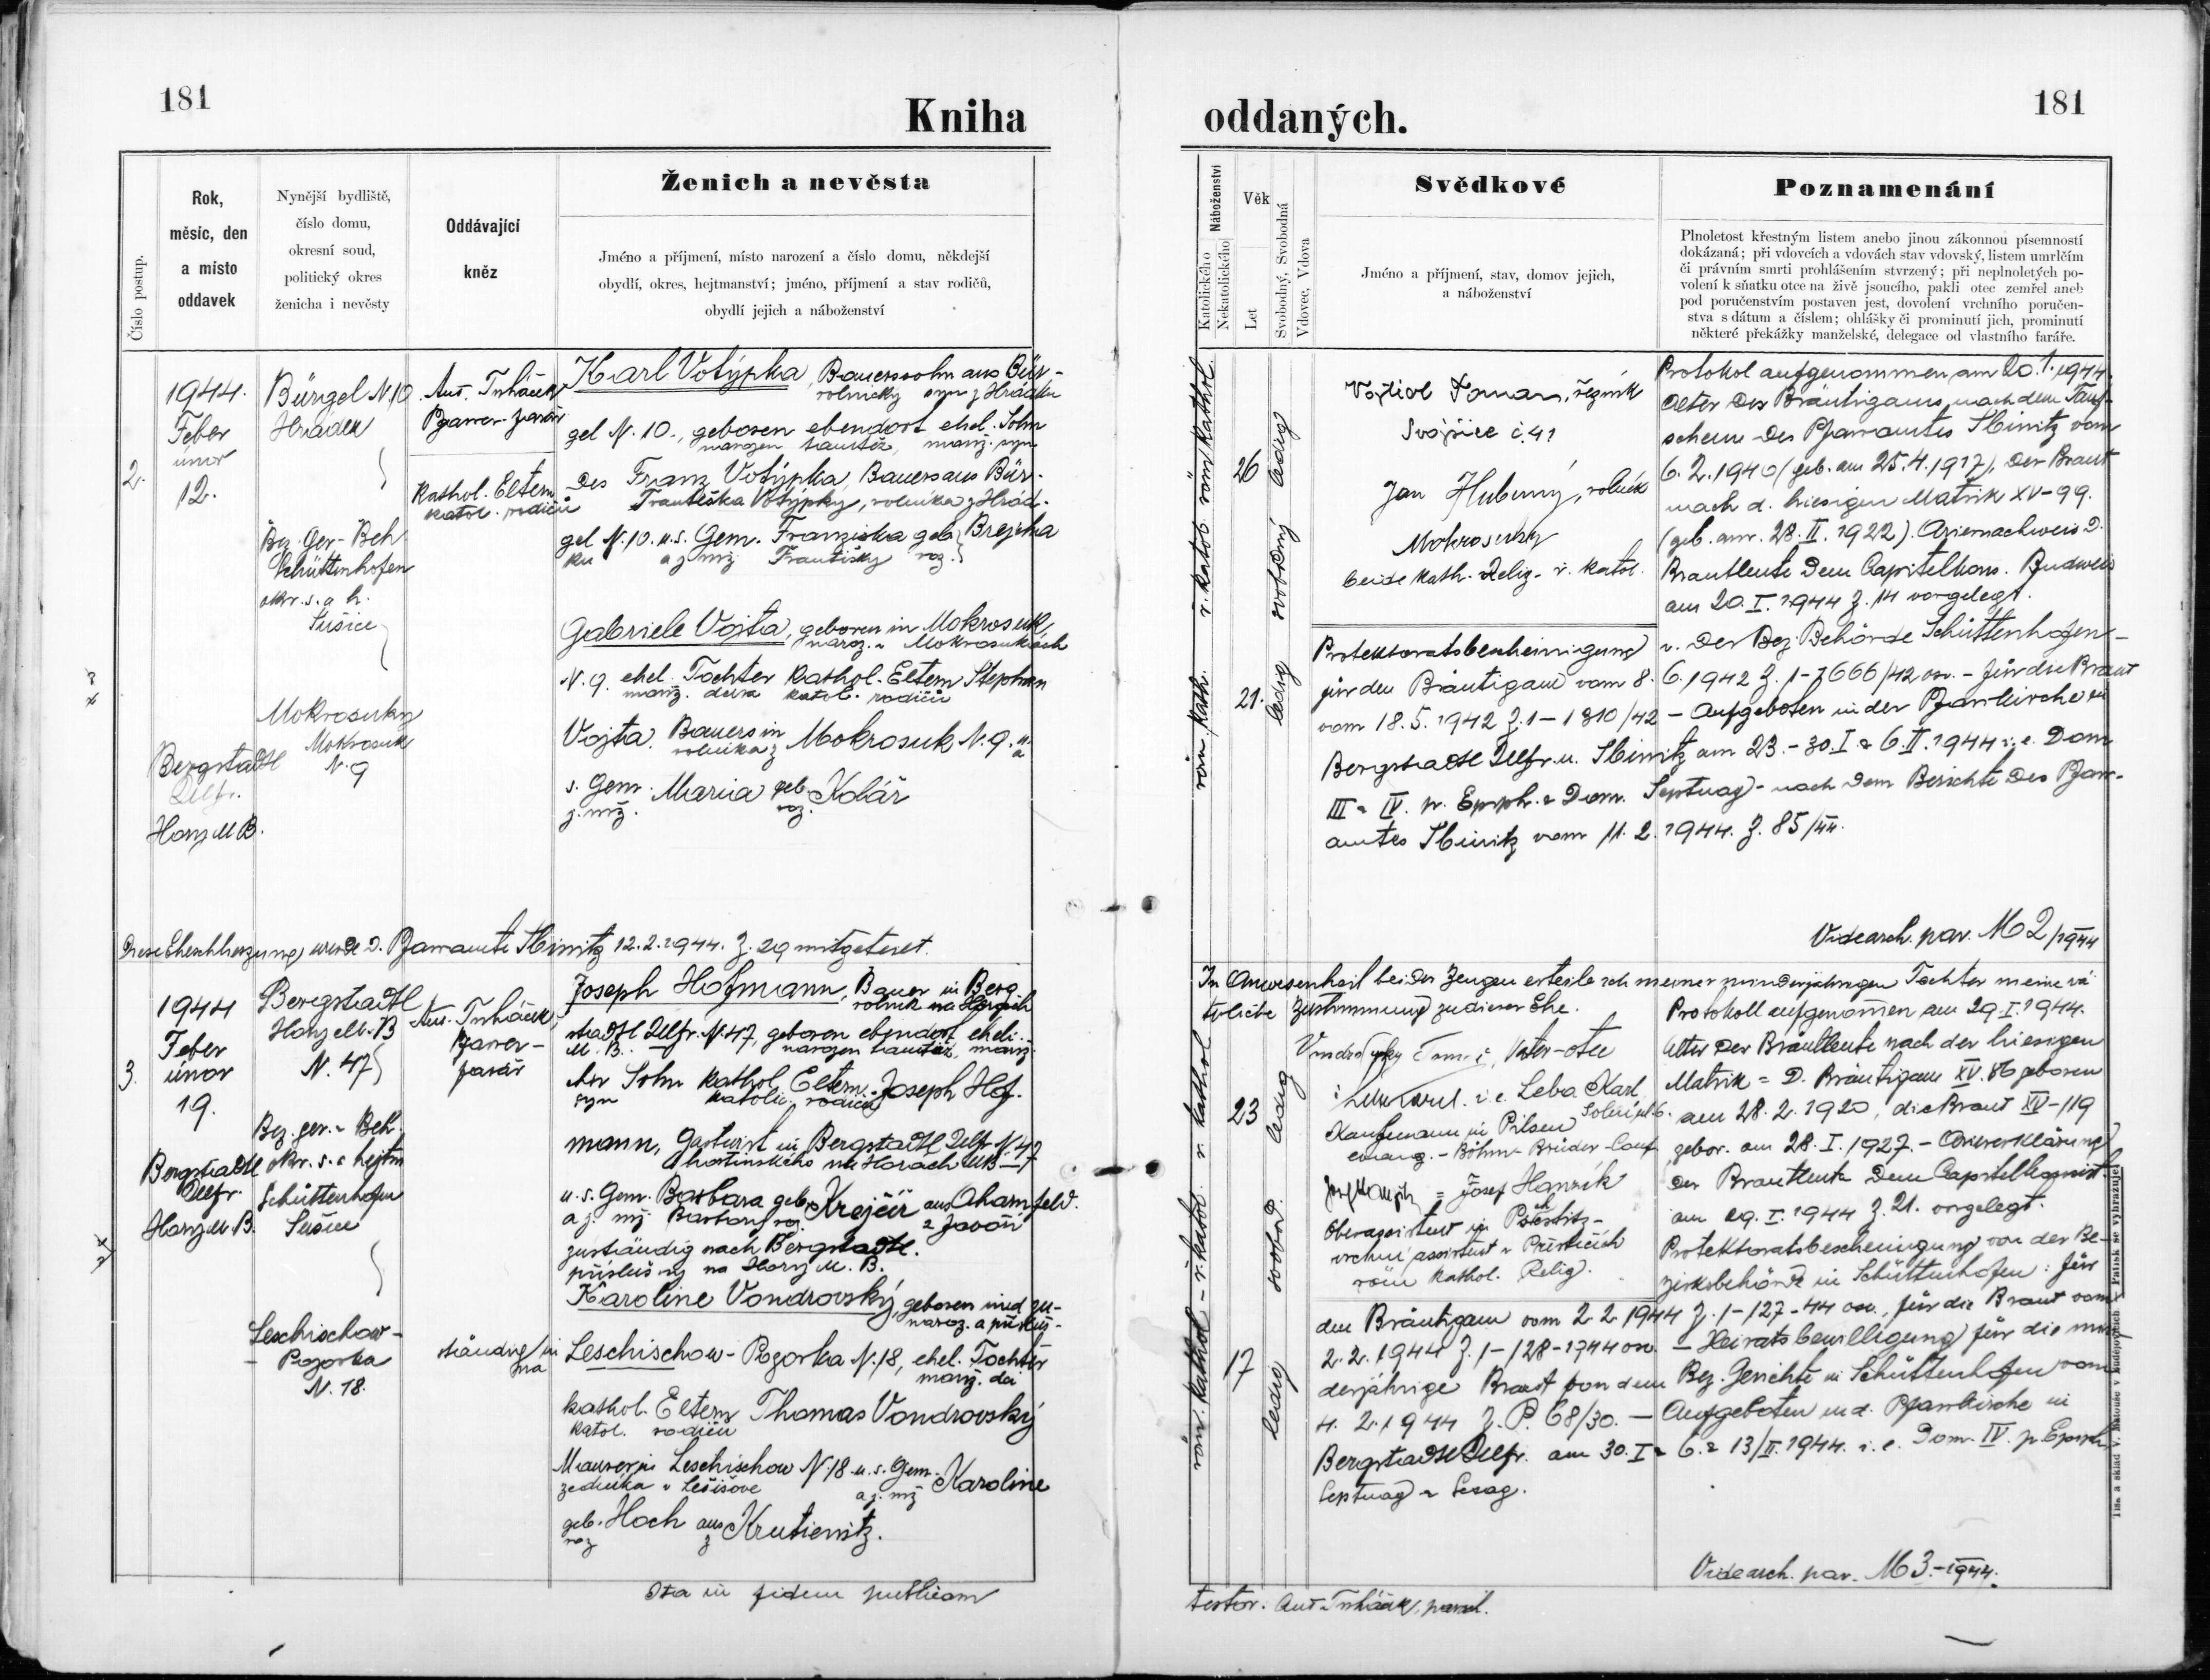 181
Kniha
Číslo postup.
Rok,
měsíc, den
a místo
oddavek
Nynější bydliště,
číslo domu,
okresní soud,
politický okres
ženicha i nevěsty
Oddávající
kněz
Ženich a nevěsta
Jméno a příjmení, místo narození a číslo domu, někdejší
obydlí, okres, hejtmanství; jméno, příjmení a stav rodičů,
obydlí jejich a náboženství
2.
1944.
Feber
únor
12.
Bergstadtl
Hory M B.
Bürgel N. 10
Hrádek
Bez. Ger- Beh.
Schüttenhofen
okr. s. a h.
Sušice
Mokrosuky
Mokrosuk
N. 9
Ant. Trháček
Pfarrer farář
Kathol. Eltern
katol. rodičů
Karl Votýpka, Bauerssohn aus Bür-
rolnický syn z Hrádku
gel N. 10., geboren ebendort ehel. Sohn
narozen tamtéž, manž. syn
des Franz Votýpka, Bauers aus Bür-
Františka Votýpky, rolníka z Hrád-
gel N. 10. u. s. Gem. Franziska geb. Brejcha
ku a j. mž Františky roz.
Gabriele Vojta, geboren in Mokrosuk
naroz. v Mokrosukách
N. 9. ehel. Tochter kathol. Eltern Stephan
manž. dcera katol. rodičů
Vojta. Bauers in Mokrosuk N. 9. u.
rolníka z a
s. Gem. Maria geb. Kolář
j. mž. roz.
Diese Eheschliessung wurde d. Pfarramte 12.2.1944. Z. 29 mitgeteilt.
3.
1944
Feber
únor
19.
Bergstadtl
Hory M B.
Bergstadtl
Hory M. B
N. 47
Bez. ger. Beh.
okr. s. a hejtm
Schüttenhofen
Sušice
Leschischow-
Pozorka
N. 18.
Ant. Trháček
Pfarrer-
farář
Joseph Hofmann, Bauer in Berg
rolník na Horách
stadtl N. 47, geboren ebendort, eheli-
M. B. narozen tamtéž, manž.
cher Sohn kathol. Eltern Joseph Hof-
syn katolic. rodičů
mann, Gastwirt in Bergstadtl N. 47
hostinského na Horách MB 47
u. s. Gem. Barbara geb. Krejčíř aus
a j. mž Barbory roz. z Javoří
zuständig nach Bergstadtl.
příslušný na Hory M. B.
Karoline Vondrovský, geboren und zu-
naroz. a přísluš-
ständig in Leschischow-Pozorka N. 18, ehel. Tochter
ná manž. dci
kathol. Eltern Thomas Vondrovský
katol. rodičů
Maurer in Leschischow N. 18 u. s. Gem. Karoline
zedníka v Lešišově a j. mž
geb. Hoch aus Krutienitz.
roz z
Ita in fidem publicam
181
oddaných.
Náboženství
Katolického
Nekatolického
Věk
Let
Svobodný, Svobodná
Vdovec, Vdova
Svědkové
Jméno a příjmení, stav, domov jejich,
a náboženství
Poznamenání
Plnoletost křestným listem anebo jinou zákonnou písemností
dokázaná; při vdovcích a vdovách stav vdovský, listem umrlčím
či právním smrti prohlášením stvrzený; při neplnoletých po-
volení k sňatku otce na živě jsoucího, pakli otec zemřel aneb
pod poručenstvím postaven jest, dovolení vrchního poručen-
stva s dátum a číslem; ohlášky či prominutí jich, prominutí
některé překážky manželské, delegace od vlastního faráře.
röm. kath. r. katol. röm kathol.
26
21.
ledig svobodný ledig
Toman, řezník
Svojšice č. 41
Jan Hubený, rolník
Mokrosuky
beide kath. Relig. ř. katol.
Protokol aufgenommen am 20.1.1944.
Alter des Bräutigams, nach dem Tauf-
scheine des Pfarramtes vom
6. 2. 1940 (geb. am 25.4.1917), der Braut
nach d. hiesigen Matrik XV-99.
(geb. am 28. II. 1922). Ariernachweis d.
Brautleute dem Capitelkons. Budweis
am 20. I. 1944 Z. 14 vorgelegt.
Protektoratsbescheinigung v. der Bez. Behörde Schüttenhofen-
für den Bräutigam vom 8. 6. 1942 Z. 1-1666/42 - für die Braut
vom 18. 5. 1942 Z. 1-1810/42 - Aufgeboten in der Pfarrkirche zu
Bergstadtl u. am 23. - 30. I. & 6. II. 1944 i. e. Dom
III & IV. p. Epiph. & Dom. Septuag. - nach dem Berichte des Pfarr-
amtes vom 11. 2. 1944. Z. 85/44.
Vide arch. par. M 2/1944
In Anwesenheit beider Zeugen erteile ich meiner minderjährigen Tochter meine vä-
terliche Zustimmung zu dieser Ehe.
röm. kathol - ř. katol. r. kathol
23
17
ledig svobod. ledig
Vater-otec
i. e. Leba Karl,
Kaufmann in Pilsen
evang. - Böhm. Brüder
= Josef Hanzík
Oberassistent in
vrchní assistent v
röm kathol. Relig.
Protokoll aufgenommen am 29. I. 1944.
Alter der Brautleute nach der hiesigen
Matrik = D. Bräutigam XV. 86 geboren
am 28. 2. 1920, die Braut XV-119
gebor. am 28. I. 1927. -
der Brautleute dem
am 29. I. 1944 Z. 21. vorgelegt.
Protektoratsbescheinigung von der Be-
zirksbehörde in Schüttenhofen: für
den Bräutigam vom 2. 2. 1944 Z. 1-127-44, für die Braut vom
2. 2. 1944 Z. 1-128-1944 - Heiratsbewilligung für die min-
derjährige Braut von dem Bez. Gerichte in Schüttenhofen vom
4. 2. 1944 Z. P. 68/30. - Aufgeboten in d. Pfarrkirche in
Bergstadtl am 30. I & 6. & 13/II. 1944. i. e. Dom. IV. p. Epiph.
Septuag & Sexag.
Vide arch. par. M 3.-1944.
testor. Ant. Trháček,